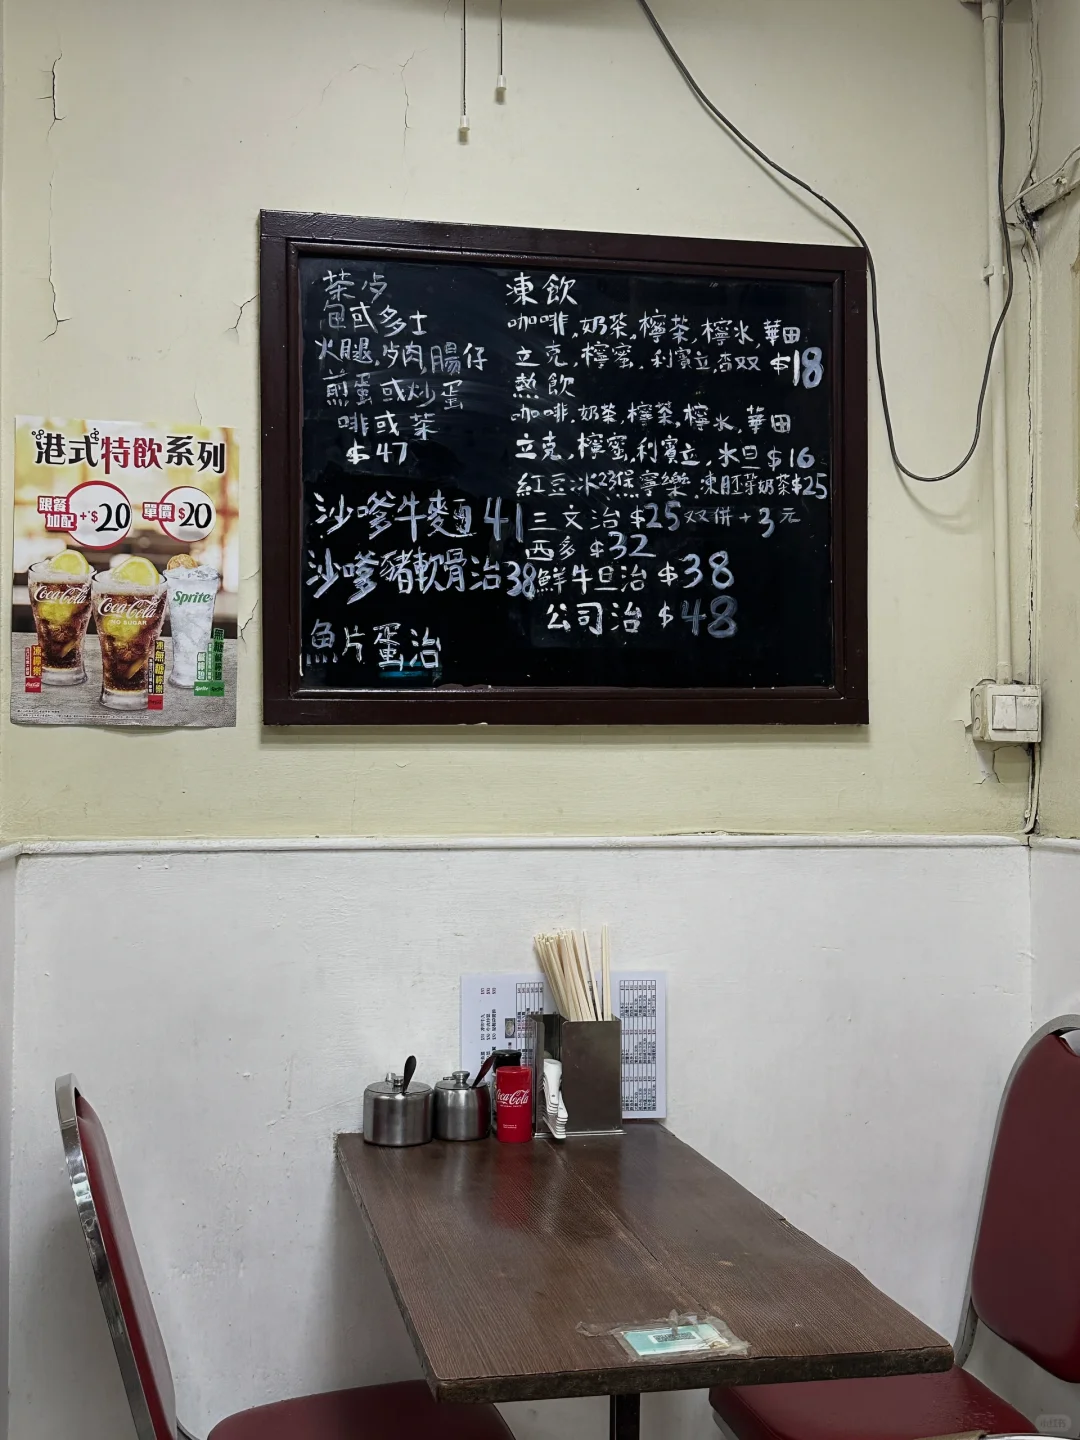 港式特飲系列
跟餐
加配
+$20
單價
$20
Coca-Cola
Coca-Cola
NO SUGAR
Sprite
茶歺
包或多士
火腿,歺肉,腸仔
煎蛋或炒蛋
啡或茶
$47
沙嗲牛麵41
沙嗲豬軟骨治38
魚片蛋治
凍飲
咖啡,奶茶,檸茶,檸水,華田
立克,檸蜜,利賓立,杏双 $18
熱飲
咖啡,奶茶,檸茶,檸水,華田
立克,檸蜜,利賓立,水旦$16
紅豆冰23煲寧樂,凍胚芽奶茶$25
三文治 $25双併+3元
西多 $32
鮮牛旦治 $38
公司治 $48
Coca-Cola